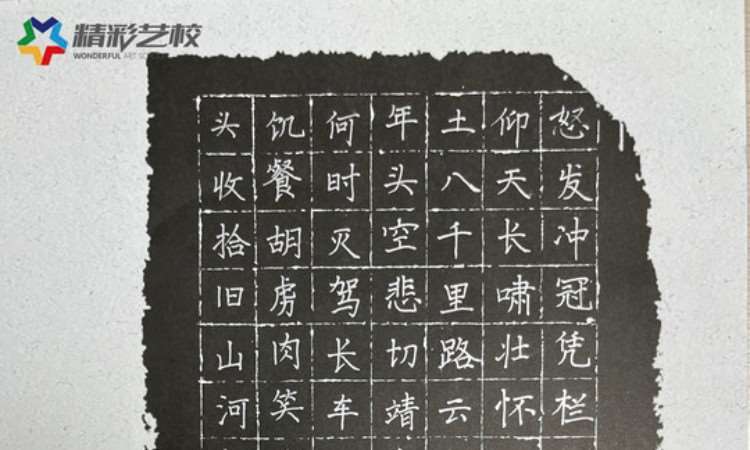 精彩艺校
WONDERFUL ART SCHOOL
怒发冲冠凭栏
仰天长啸壮怀
土八千里路云
年头空悲切靖
何时灭驾长车
饥餐胡虏肉笑
头收拾旧山河